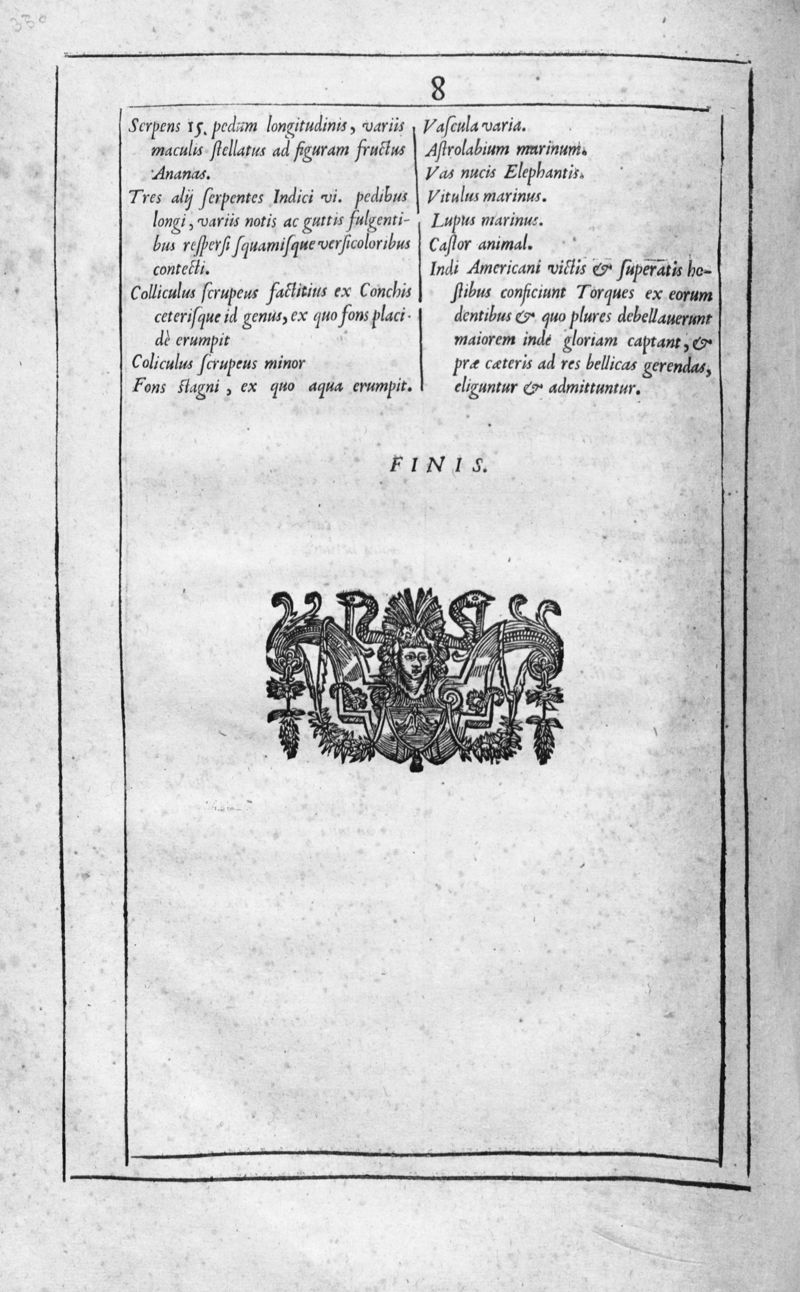 330
8
Serpens 15. pedum longitudinis, variis
maculis ſtellatus ad figuram fructus
Ananas.
Tres alij ſerpentes Indici vi. pedibus
longi, variis notis ac guttis fulgenti-
bus reſperſi ſquamiſque verſicoloribus
contecti.
Colliculus ſcrupeus factitius ex Conchis
ceteriſque id genus, ex quo fons placi-
dè erumpit
Coliculus ſcrupeus minor
Fons ſtagni, ex quo aqua erumpit.
Vaſcula varia.
Aſtrolabium marinum.
Vas nucis Elephantis.
Vitulus marinus.
Lupus marinus.
Caſtor animal.
Indi Americani victis & ſuperatis ho-
ſtibus conficiunt Torques ex eorum
dentibus & quo plures debellauerunt
maiorem inde gloriam captant, &
præ cæteris ad res bellicas gerendas,
eliguntur & admittuntur.
FINIS.